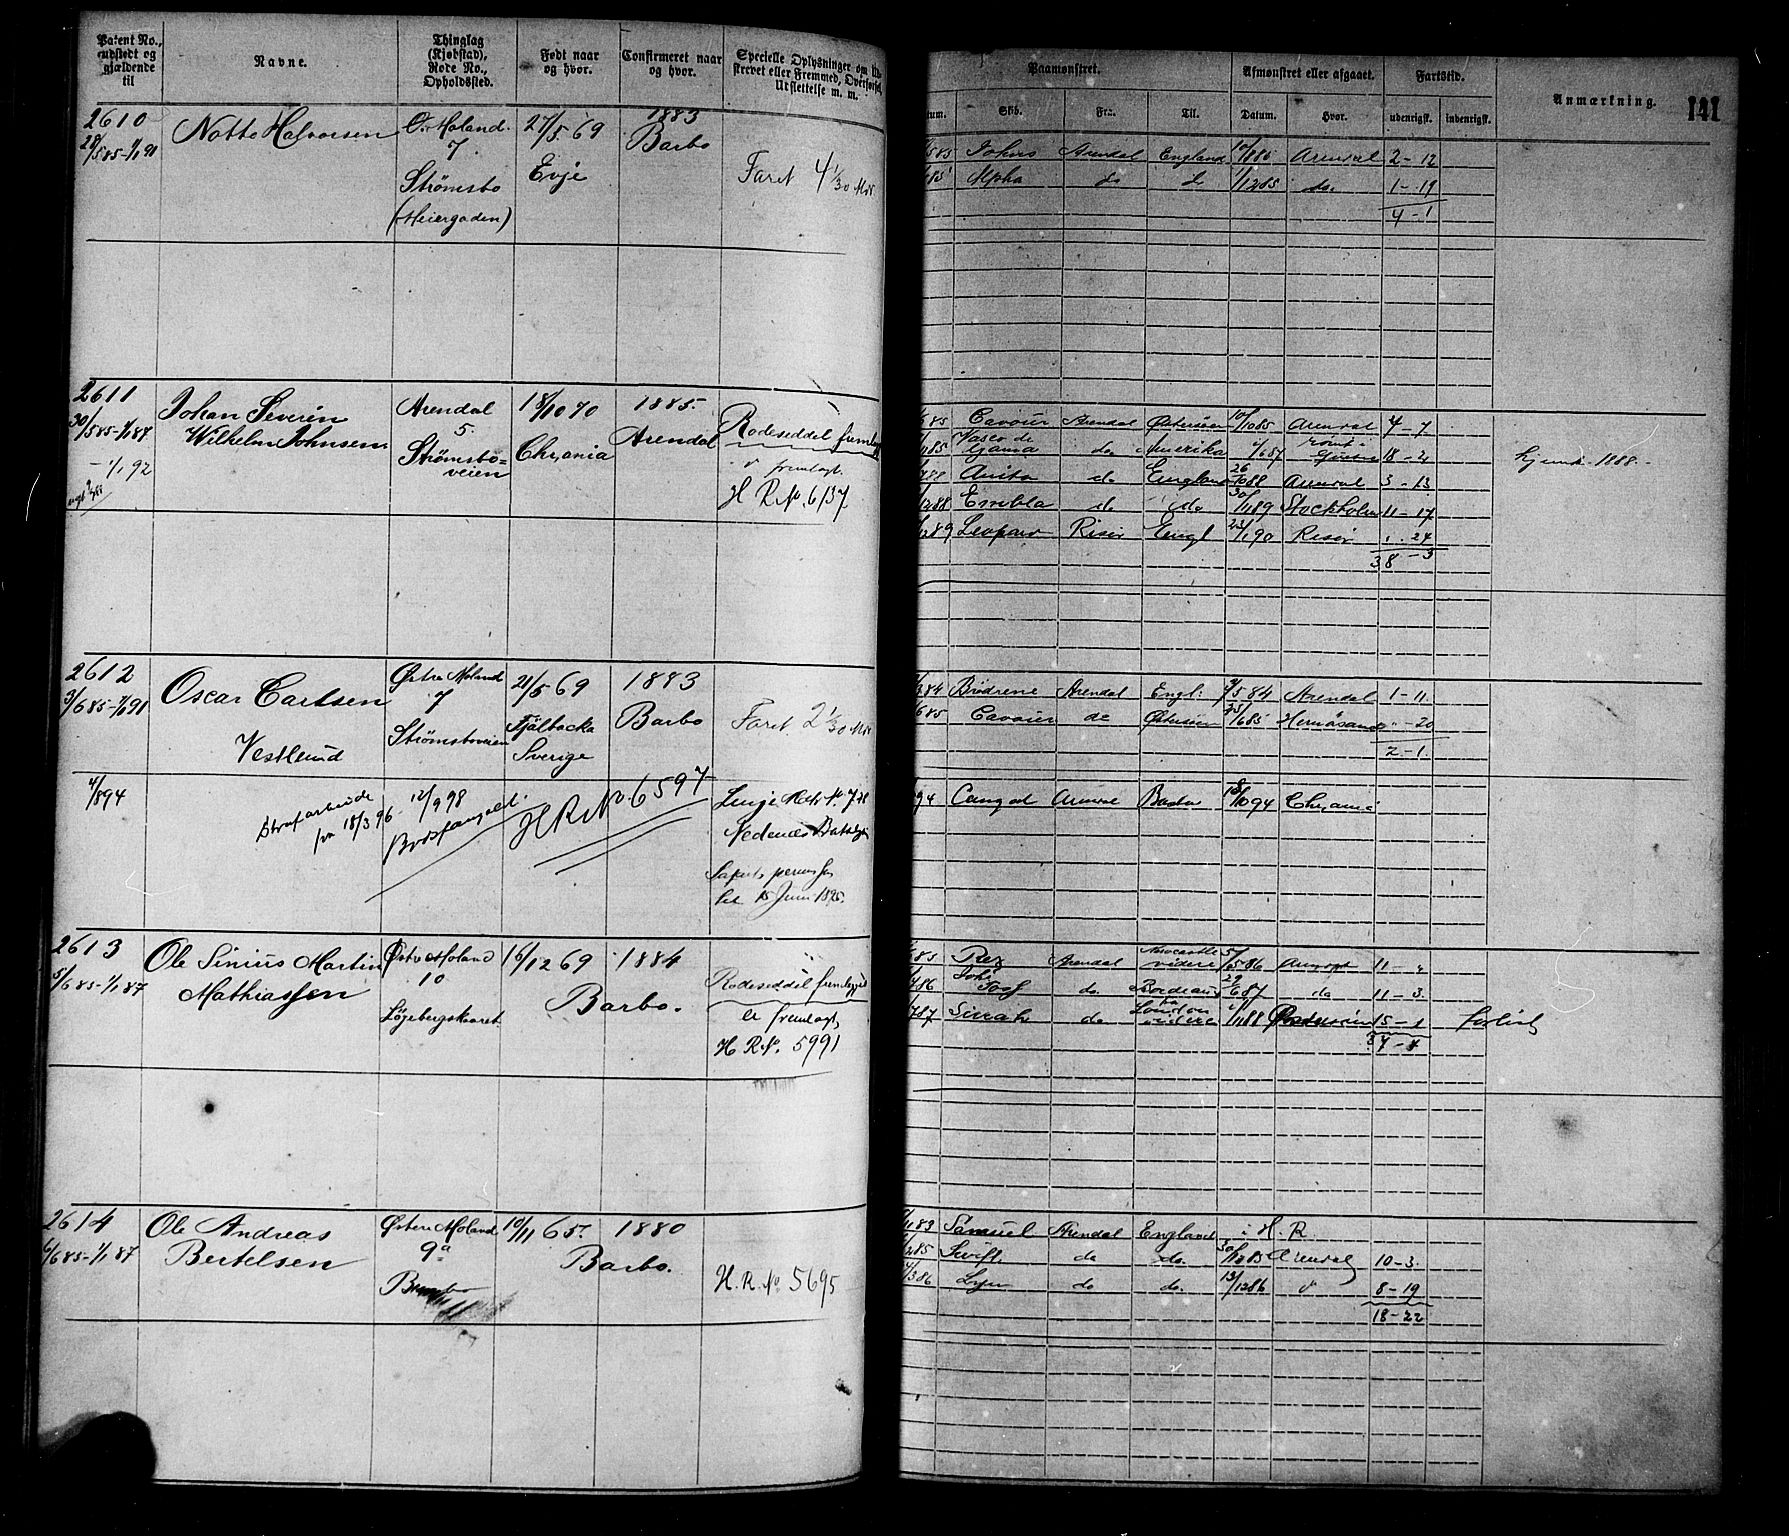 Patent No., udstedt og gjældende til
Navne.
Thinglag (Kjøbstad), Rode No., Opholdssted.
Født naar og hvor.
Confirmeret naar og hvor.
Specielle Oplysninger om
strevet eller Fremmed, Overførsel,
Udslettelse m. m.
Paamønstret.
Afmønstret eller afgaaet.
Fartstid.
Anmærkning.
141
Skb.
Fra.
Til.
Datum.
Hvor.
udenrigsk.
indenrigsk.
2610
28/5 85-1/1 91
Notto Halvorsen
Ø. Moland.
7
Strømsbo
(Heiergaden)
27/5. 69
Evje
1883
Barbo
Faret 4 1/30 Mdr
Arendal England 10/8 85 Arendal 2-12
Alpha do d 1/12 85 do. 1-19
4-1
2611
30/5 85-1/1 87
-1/1 92
Johan Severin
Wilhelm Johnsen
Arendal
5.
Strømsbo=
veien
18/10 70
Chr,ania
1885.
Arendal
Rodeseddel fremlægges
er fremlagt.
H R No. 6137
Cavour Arendal Østersøen 10/10 85 Arendal 4-7
Vasco de Gama do Amerika 87 18-2
Anita do England 26 88 Arendal 3-13
Embla do do 30/11 89 Stockholm 11-17
Leopard Risør Engl 23/1 90 Risør 1.24
38-3
1888.
2612
3/6 85-1/1 91
Oscar Carlsen
Vestlund
Østre Moland
7
Strømsboveien
21/5 69
Fjälbacka
Sverige
1883
Barbo
Faret. 2 1/30 Mdr
Brødrene Arendal Engl: 5 84 Arendal 1-11
Cavour do Østersøen 25/6 85 Hernøsand "-20
2-1.
4/8 94
Strafarbeide
fra 18/3 96 - 12/9 98
Bodsfængslet.
H R No. 6597
Linje Rek No. 728
Nedenæs Batalj
permis
til 15 Juni 1895.
Arendal 10 94 Chr,ania
2613
5/6 85-1/1 87
Ole Sinius Martin
Mathiassen
Østre Moland
10
Løgebergskaaret
16/12 69
Barbo.
1884
Rodeseddel fremlægges
er fremlagt,
H R No. 5991
Rex Arendal Newcastle videre 5/5 86 11-
do. Bordeaux 29/6 87 do 11-3.
Sirrah do London videre 1 88 15-1 forlist
37-4
2614
6/6 85-1/1 87
Ole Andreas
Bertelsen
Østre Moland
9a
10/11 65.
Barbo.
1880
H. R. No 5695
Samuel Arendal England i H. R.
Swift. do do. 30/11 85 Arendal 10-3.
do do. 13/12 86 8-19
18-22